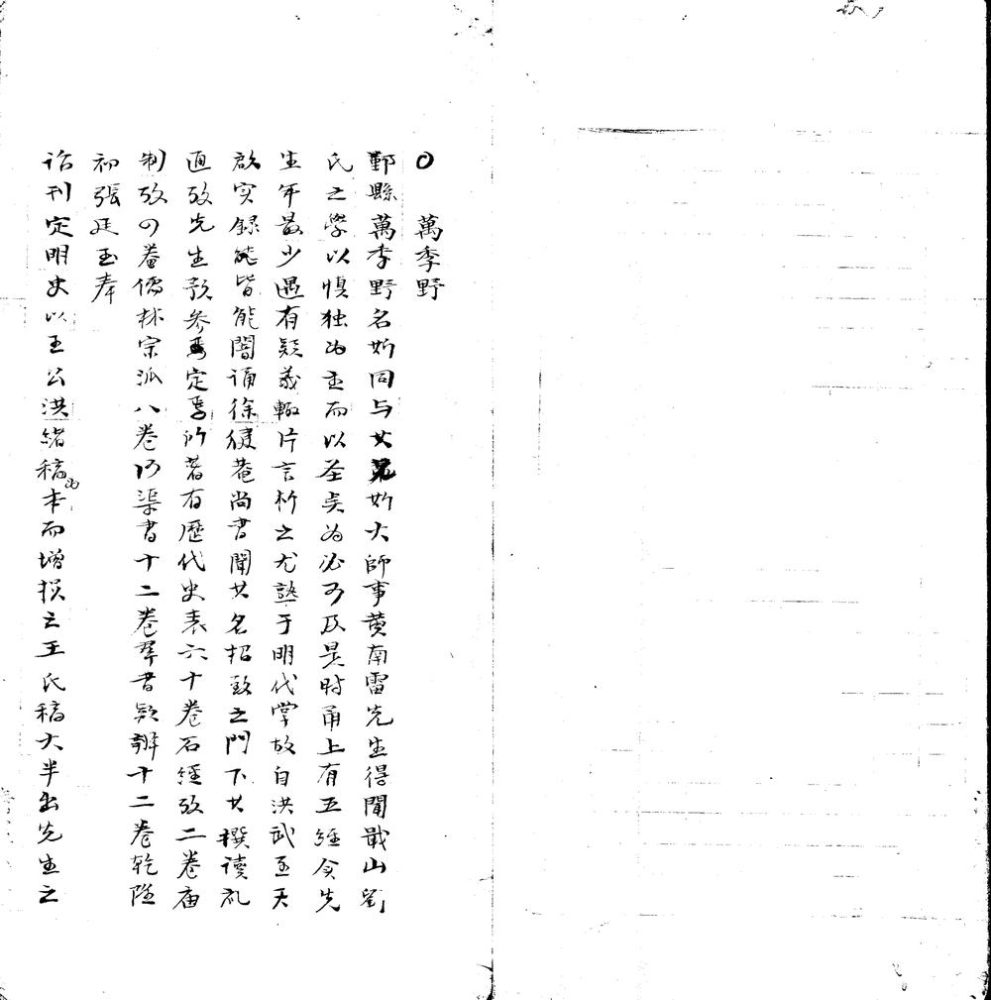 ○　萬季野
鄞縣萬季野名斯同与其兄斯大師事黄南雷先生得聞蕺山劉
氏之學以慎独为主而以圣贤为必可及是时甬上有五經会先
生年最少遇有疑義輙片言析之尤熟于明代掌故自洪武至天
啟实録皆能闇诵徐健菴尚書聞其名招致之門下其撰读礼
通攷先生豫参定焉所著有歷代史表六十卷石經攷二卷庙
制攷四卷儒林宗派八卷河渠書十二卷羣書疑辨十二卷乾隆
初張廷玉奉
诏刊定明史以王公洪緒稿为本而增损之王氏稿大半出先生之